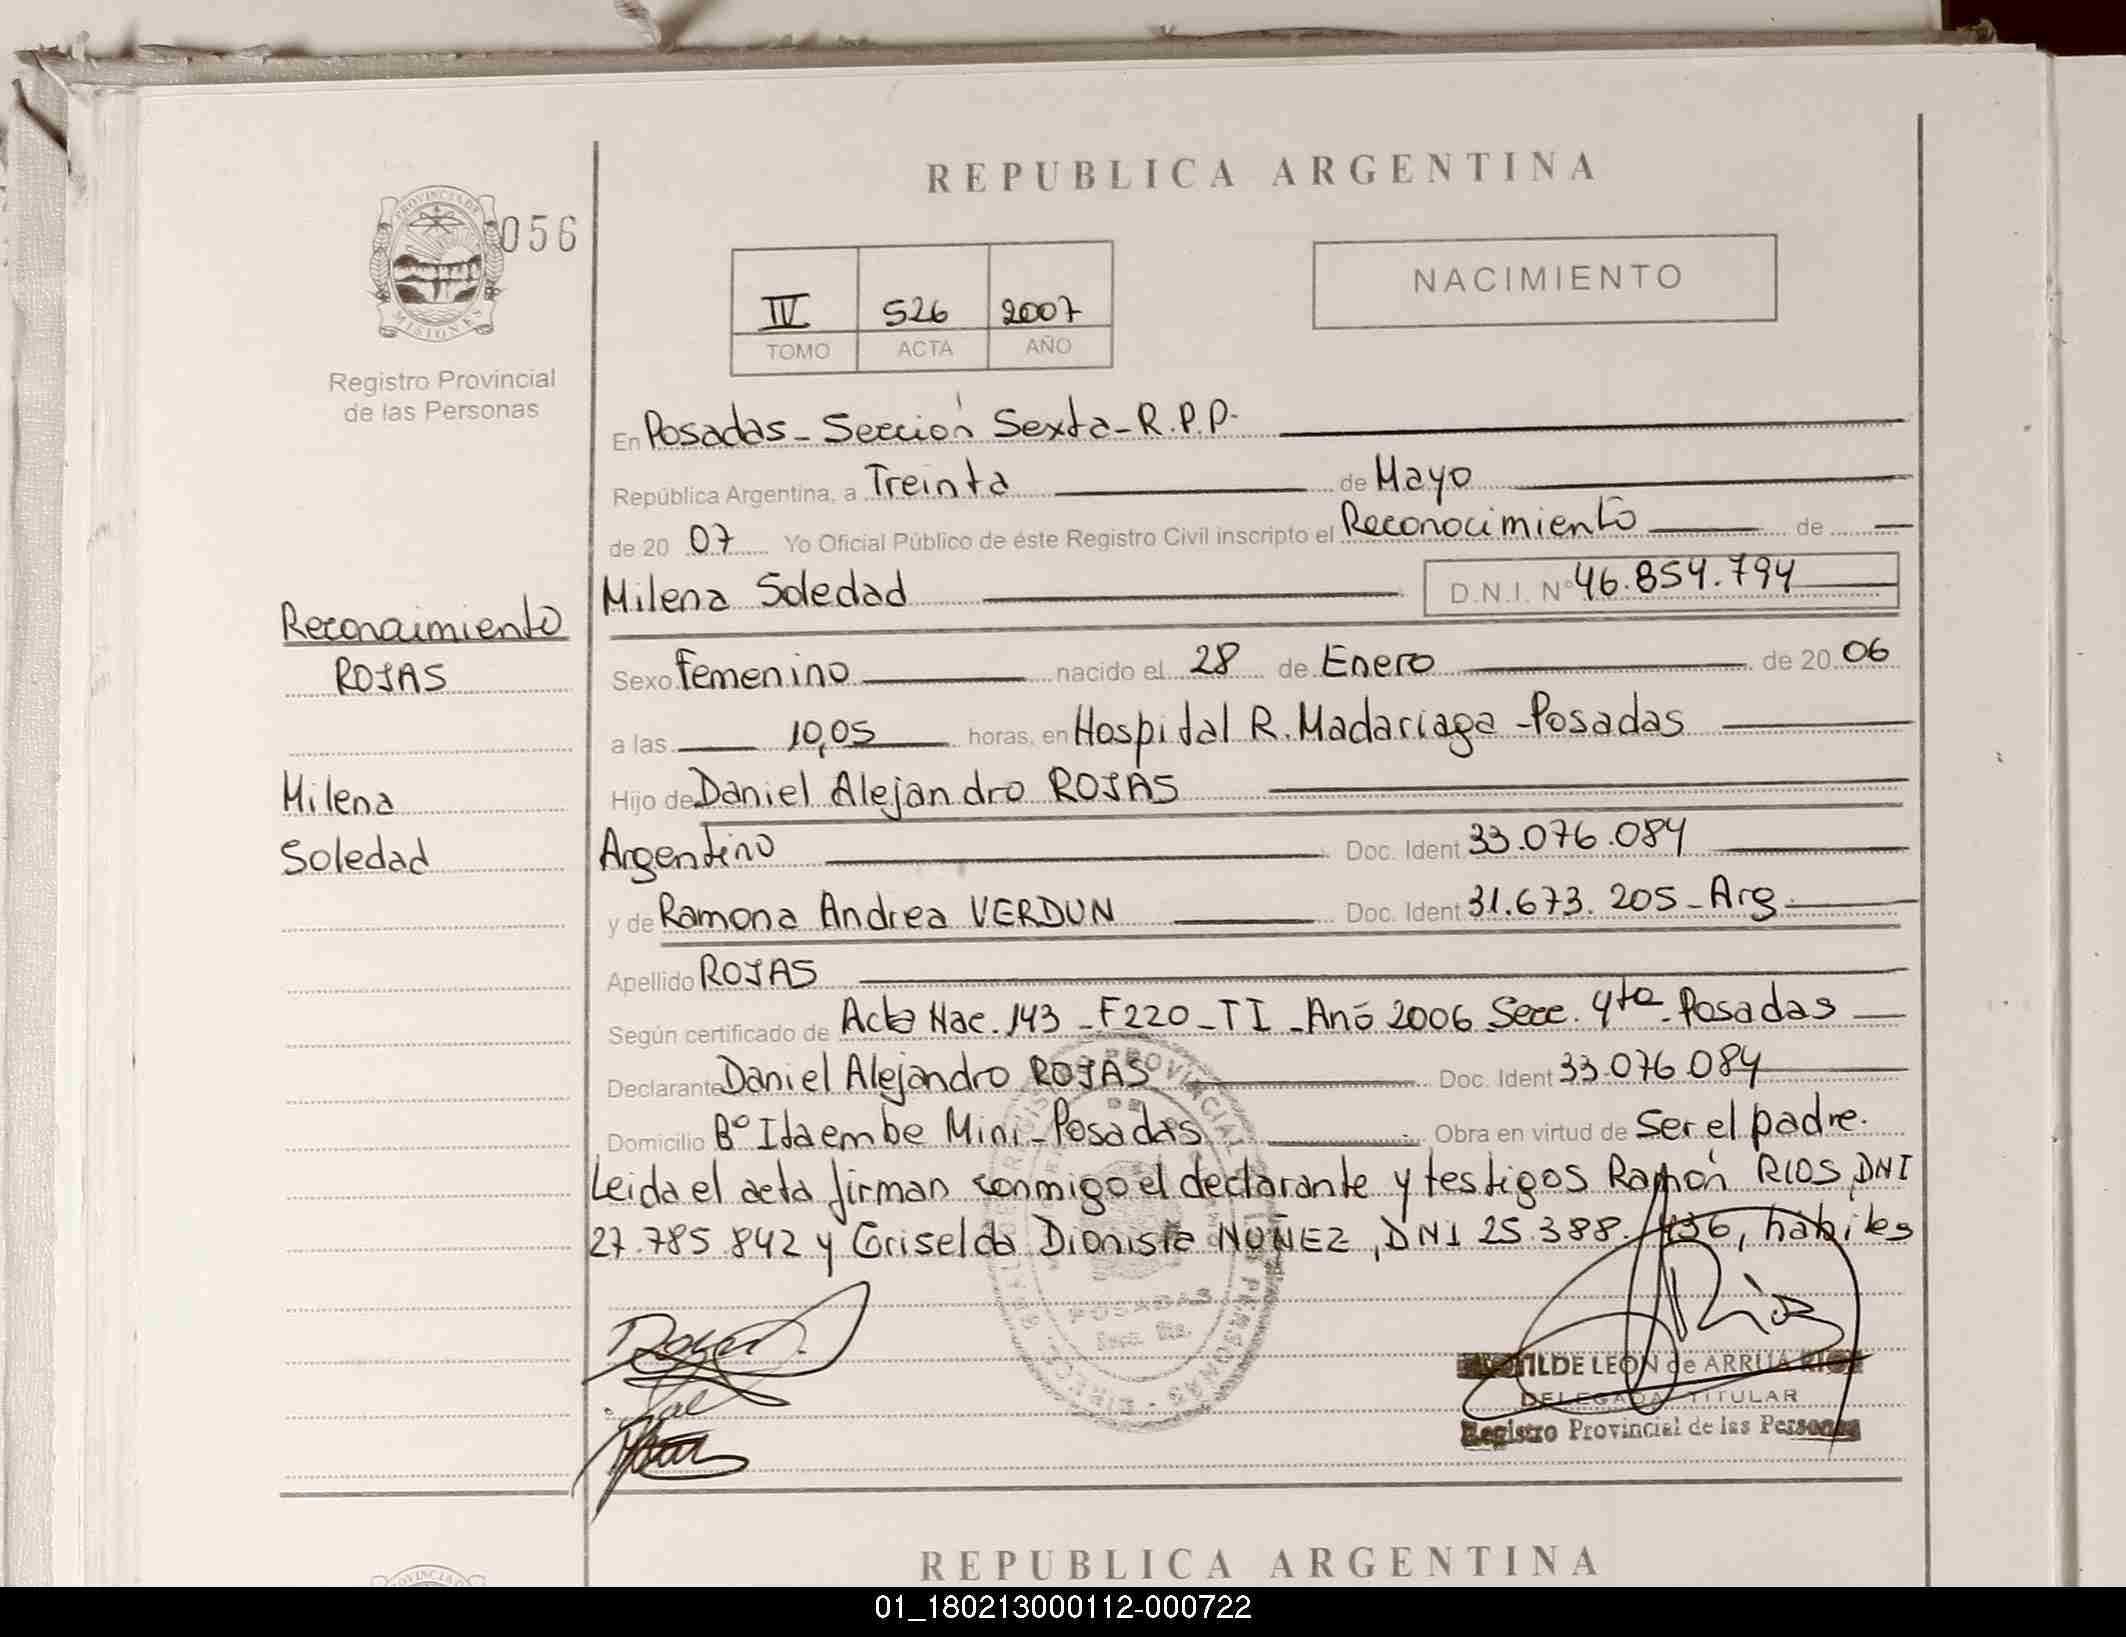 REPUBLICA ARGENTINA
PROVINCIA DE
MISIONES
056
Registro Provincial
de las Personas
IV 526 2007
TOMO ACTA AÑO
NACIMIENTO
En Posadas - Sección Sexta - R.P.P.
República Argentina, a Treinta de Mayo
de 20 07 Yo Oficial Público de éste Registro Civil inscripto el Reconocimiento de
Milena Soledad D.N.I. N° 46.854.794
Reconocimiento
ROJAS
Milena
Soledad
Sexo Femenino nacido el 28 de Enero de 20 06
a las 10,05 horas, en Hospital R. Madariaga - Posadas
Hijo de Daniel Alejandro ROJAS
Argentino Doc. Ident 33.076.084
y de Ramona Andrea VERDUN Doc. Ident 31.673.205 - Arg
Apellido ROJAS
Según certificado de Acta Nac. 143 - F220 - TI - Año 2006 Secc. 4ta - Posadas
Declarante Daniel Alejandro ROJAS Doc. Ident 33.076.084
Domicilio B° Itaembe Mini - Posadas Obra en virtud de ser el padre.
Leida el acta firman conmigo el declarante y testigos Ramón RIOS, DNI
27.785.842 y Griselda Dionisia NUÑEZ, DNI 25.388.436, hábiles
POSADAS
Secc. 6ta.
LEON de ARRUA
DELEGADA TITULAR
Registro Provincial de las Personas
REPUBLICA ARGENTINA
01_180213000112-000722